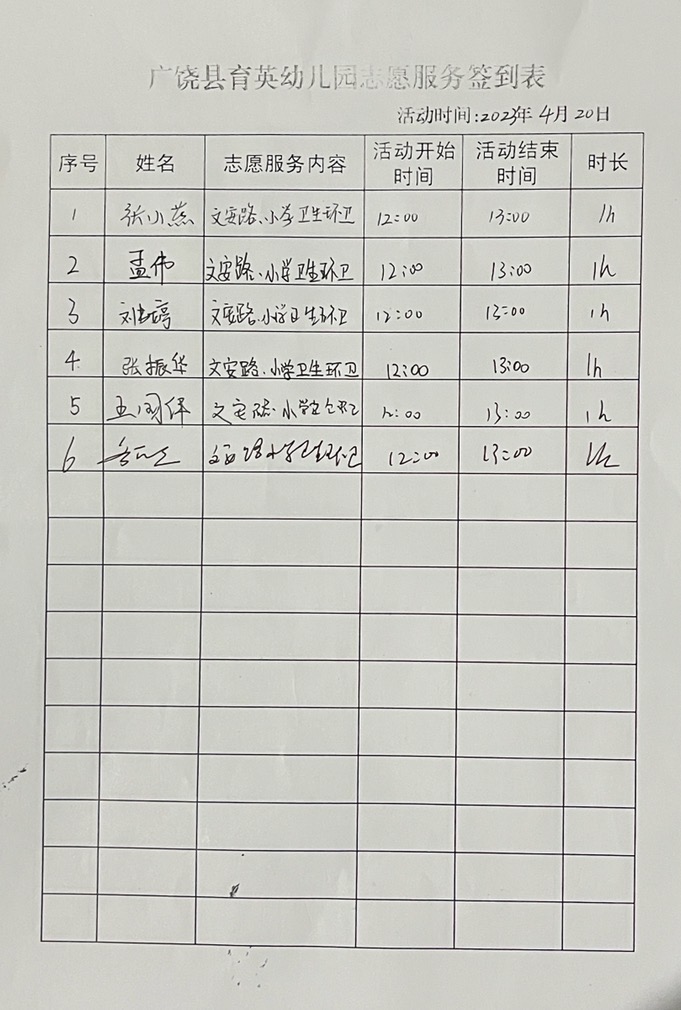 广饶县育英幼儿园志愿服务签到表
活动时间:2023年4月20日
序号 姓名 志愿服务内容 活动开始时间 活动结束时间 时长
1 张小燕 文安路、小学卫生环卫 12:00 13:00 1h
2 孟伟 文安路、小学卫生环卫 12:00 13:00 1h
3 刘婷 文安路、小学卫生环卫 12:00 13:00 1h
4 张振华 文安路、小学卫生环卫 12:00 13:00 1h
5 文安路、小学 12:00 13:00 1h
6 文安路小学卫生环卫 12:00 13:00 1h